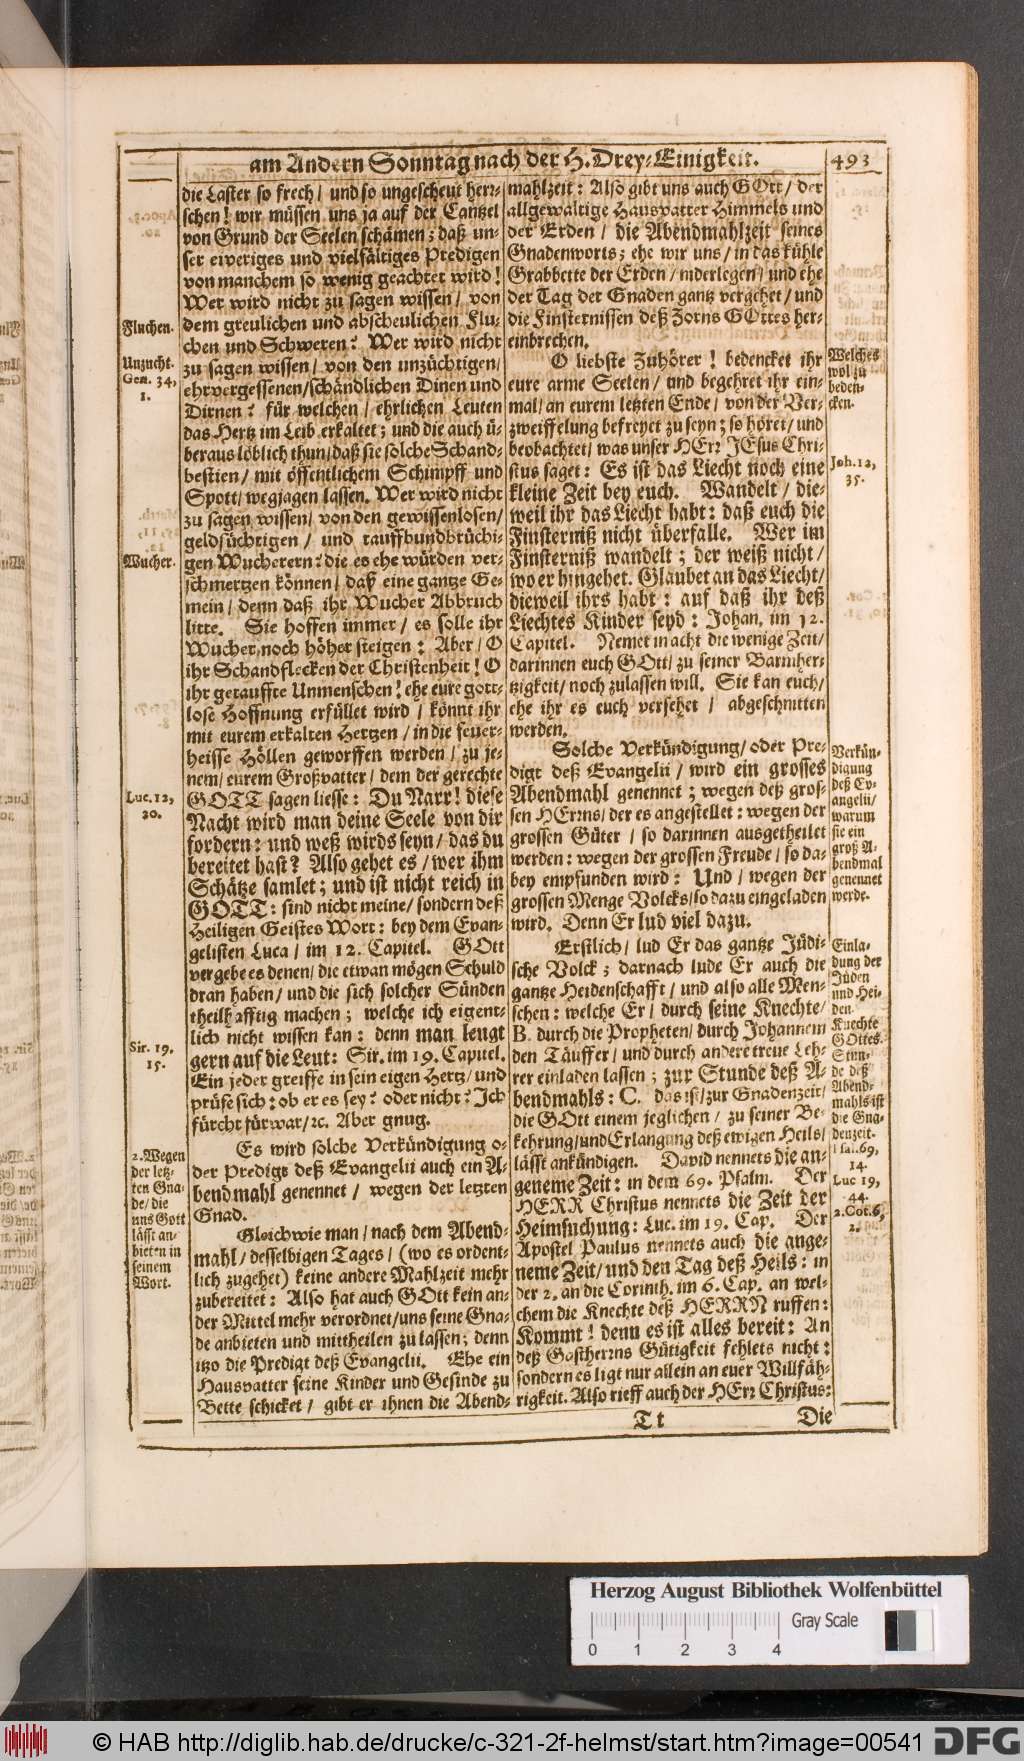 am Andern Sonntag nach der H. Drey-Einigkeit.
493
die Laster so frech / und so ungescheut herr-
schen! wir müssen uns ja auf der Cantzel
von Grund der Seelen schämen; daß un-
ser eiveriges und vielfältiges Predigen
von manchem so wenig geachtet wird!
Wer wird nicht zu sagen wissen / von
dem greulichen und abscheulichen Flu-
chen und Schweren? Wer wird nicht
zu sagen wissen / von den unzüchtigen /
ehrvergessenen / schändlichen Dinen und
Dirnen? für welchen / ehrlichen Leuten
das Hertz im Leib erkaltet; und die auch ü-
beraus löblich thun / daß sie solche Schand-
bestien / mit öffentlichem Schimpff und
Spott / wegjagen lassen. Wer wird nicht
zu sagen wissen / von den gewissenlosen /
geldsüchtigen / und tauffbundbrüchi-
gen Wucherern? die es ehe würden ver-
schmertzen können / daß eine gantze Ge-
mein / denn daß ihr Wucher Abbruch
litte. Sie hoffen immer / es solle ihr
Wucher noch höher steigen: Aber / O
ihr Schandflecken der Christenheit! O
ihr getauffte Unmenschen! ehe eure gott-
lose Hoffnung erfüllet wird / könnt ihr
mit eurem erkalten Hertzen / in die feuer-
heisse Höllen geworffen werden / zu je-
nem / eurem Großvatter / dem der gerechte
GOTT sagen liesse: Du Narr! diese
Nacht wird man deine Seele von dir
fordern: und weß wirds seyn / das du
bereitet hast? Also gehet es / wer ihm
Schätze samlet; und ist nicht reich in
GOTT: sind nicht meine / sondern deß
Heiligen Geistes Wort: bey dem Evan-
gelisten Luca / im 12. Capitel. GOtt
vergebe es denen / die etwan mögen Schuld
dran haben / und die sich solcher Sünden
theilhafftig machen; welche ich eigent-
lich nicht wissen kan: denn man leugt
gern auf die Leut: Sir. im 19. Capitel.
Ein jeder greiffe in sein eigen Hertz / und
prüfe sich: ob er es sey? oder nicht? Ich
fürcht fürwar / ꝛc. Aber gnug.
Es wird solche Verkündigung o-
der Predigt deß Evangelii auch ein A-
bendmahl genennet / wegen der letzten
Gnad.
Gleichwie man / nach dem Abend-
mahl / desselbigen Tages / (wo es ordent-
lich zugehet) keine andere Mahlzeit mehr
zubereitet: Also hat auch GOtt kein an-
der Mittel mehr verordnet / uns seine Gna-
de anbieten und mittheilen zu lassen; denn
itzo die Predigt deß Evangelii. Ehe ein
Hausvatter seine Kinder und Gesinde zu
Bette schicket / gibt er ihnen die Abend-
Fluchen.
Unzucht.
Gen. 34,
1.
Wucher.
Luc. 12,
20.
Sir. 19.
15.
2. Wegen
der letz-
ten Gna-
de / die
uns Gott
lässt an-
bieten in
seinem
Wort.
mahlzeit: Also gibt uns auch GOtt / der
allgewaltige Hausvatter Himmels und
der Erden / die Abendmahlzeit seines
Gnadenworts; ehe wir uns / in das kühle
Grabbette der Erden / niderlegen / und ehe
der Tag der Gnaden gantz vergehet / und
die Finsternissen deß Zorns GOttes her-
einbrechen.
O liebste Zuhörer! bedencket ihr
eure arme Seelen / und begehret ihr ein-
mal / an eurem letzten Ende / von der Ver-
zweiffelung befreyet zu seyn; so höret / und
beobachtet / was unser HErꝛ JEsus Chri-
stus saget: Es ist das Liecht noch eine
kleine Zeit bey euch. Wandelt / die-
weil ihr das Liecht habt: daß euch die
Finsterniß nicht überfalle. Wer im
Finsterniß wandelt; der weiß nicht /
wo er hingehet. Gläubet an das Liecht /
dieweil ihrs habt: auf daß ihr deß
Liechtes Kinder seyd: Johan. im 12.
Capitel. Nemet in acht die wenige Zeit /
darinnen euch GOtt / zu seiner Barmher-
tzigkeit / noch zulassen will. Sie kan euch /
ehe ihr es euch versehet / abgeschnitten
werden.
Solche Verkündigung / oder Pre-
digt deß Evangelii / wird ein grosses
Abendmahl genennet; wegen deß gros-
sen HErꝛns / der es angestellet: wegen der
grossen Güter / so darinnen ausgetheilet
werden: wegen der grossen Freude / so da-
bey empfunden wird: Und / wegen der
grossen Menge Volcks / so dazu eingeladen
wird. Denn Er lud viel dazu.
Erstlich / lud Er das gantze Jüdi-
sche Volck; darnach lude Er auch die
gantze Heidenschafft / und also alle Men-
schen: welche Er / durch seine Knechte /
B. durch die Propheten / durch Johannem
den Täuffer / und durch andere treue Leh-
rer einladen lassen; zur Stunde deß A-
bendmahls: C. das ist / zur Gnadenzeit /
die GOtt einem jeglichen / zu seiner Be-
kehrung / und Erlangung deß ewigen Heils /
lässt ankündigen. David nennets die an-
geneme Zeit: in dem 69. Psalm. Der
HERR Christus nennets die Zeit der
Heimsuchung: Luc. im 19. Cap. Der
Apostel Paulus nennets auch die ange-
neme Zeit / und den Tag deß Heils: in
der 2. an die Corinth. im 6. Cap. an wel-
chem die Knechte deß HERRN ruffen:
Kommt! denn es ist alles bereit: An
deß Gastherꝛns Gütigkeit fehlets nicht:
sondern es ligt nur allein an euer Willfäh-
rigkeit. Also rieff auch der HErꝛ Christus:
Welches
wol zu
beden-
cken.
Joh. 12,
35.
Verkün-
digung
deß Ev-
angelii /
warum
sie ein
groß A-
bendmal
genennet
werde.
Einla-
dung der
Jüden
und Hei-
den.
Knechte
GOttes.
Stun-
de deß
Abend-
mahls ist
die Gna-
denzeit.
Psal. 69,
14.
Luc 19,
44.
2. Cor. 6,
2.
Tt
Die
Herzog August Bibliothek Wolfenbüttel
Gray Scale
0 1 2 3 4
© HAB http://diglib.hab.de/drucke/c-321-2f-helmst/start.htm?image=00541
DFG